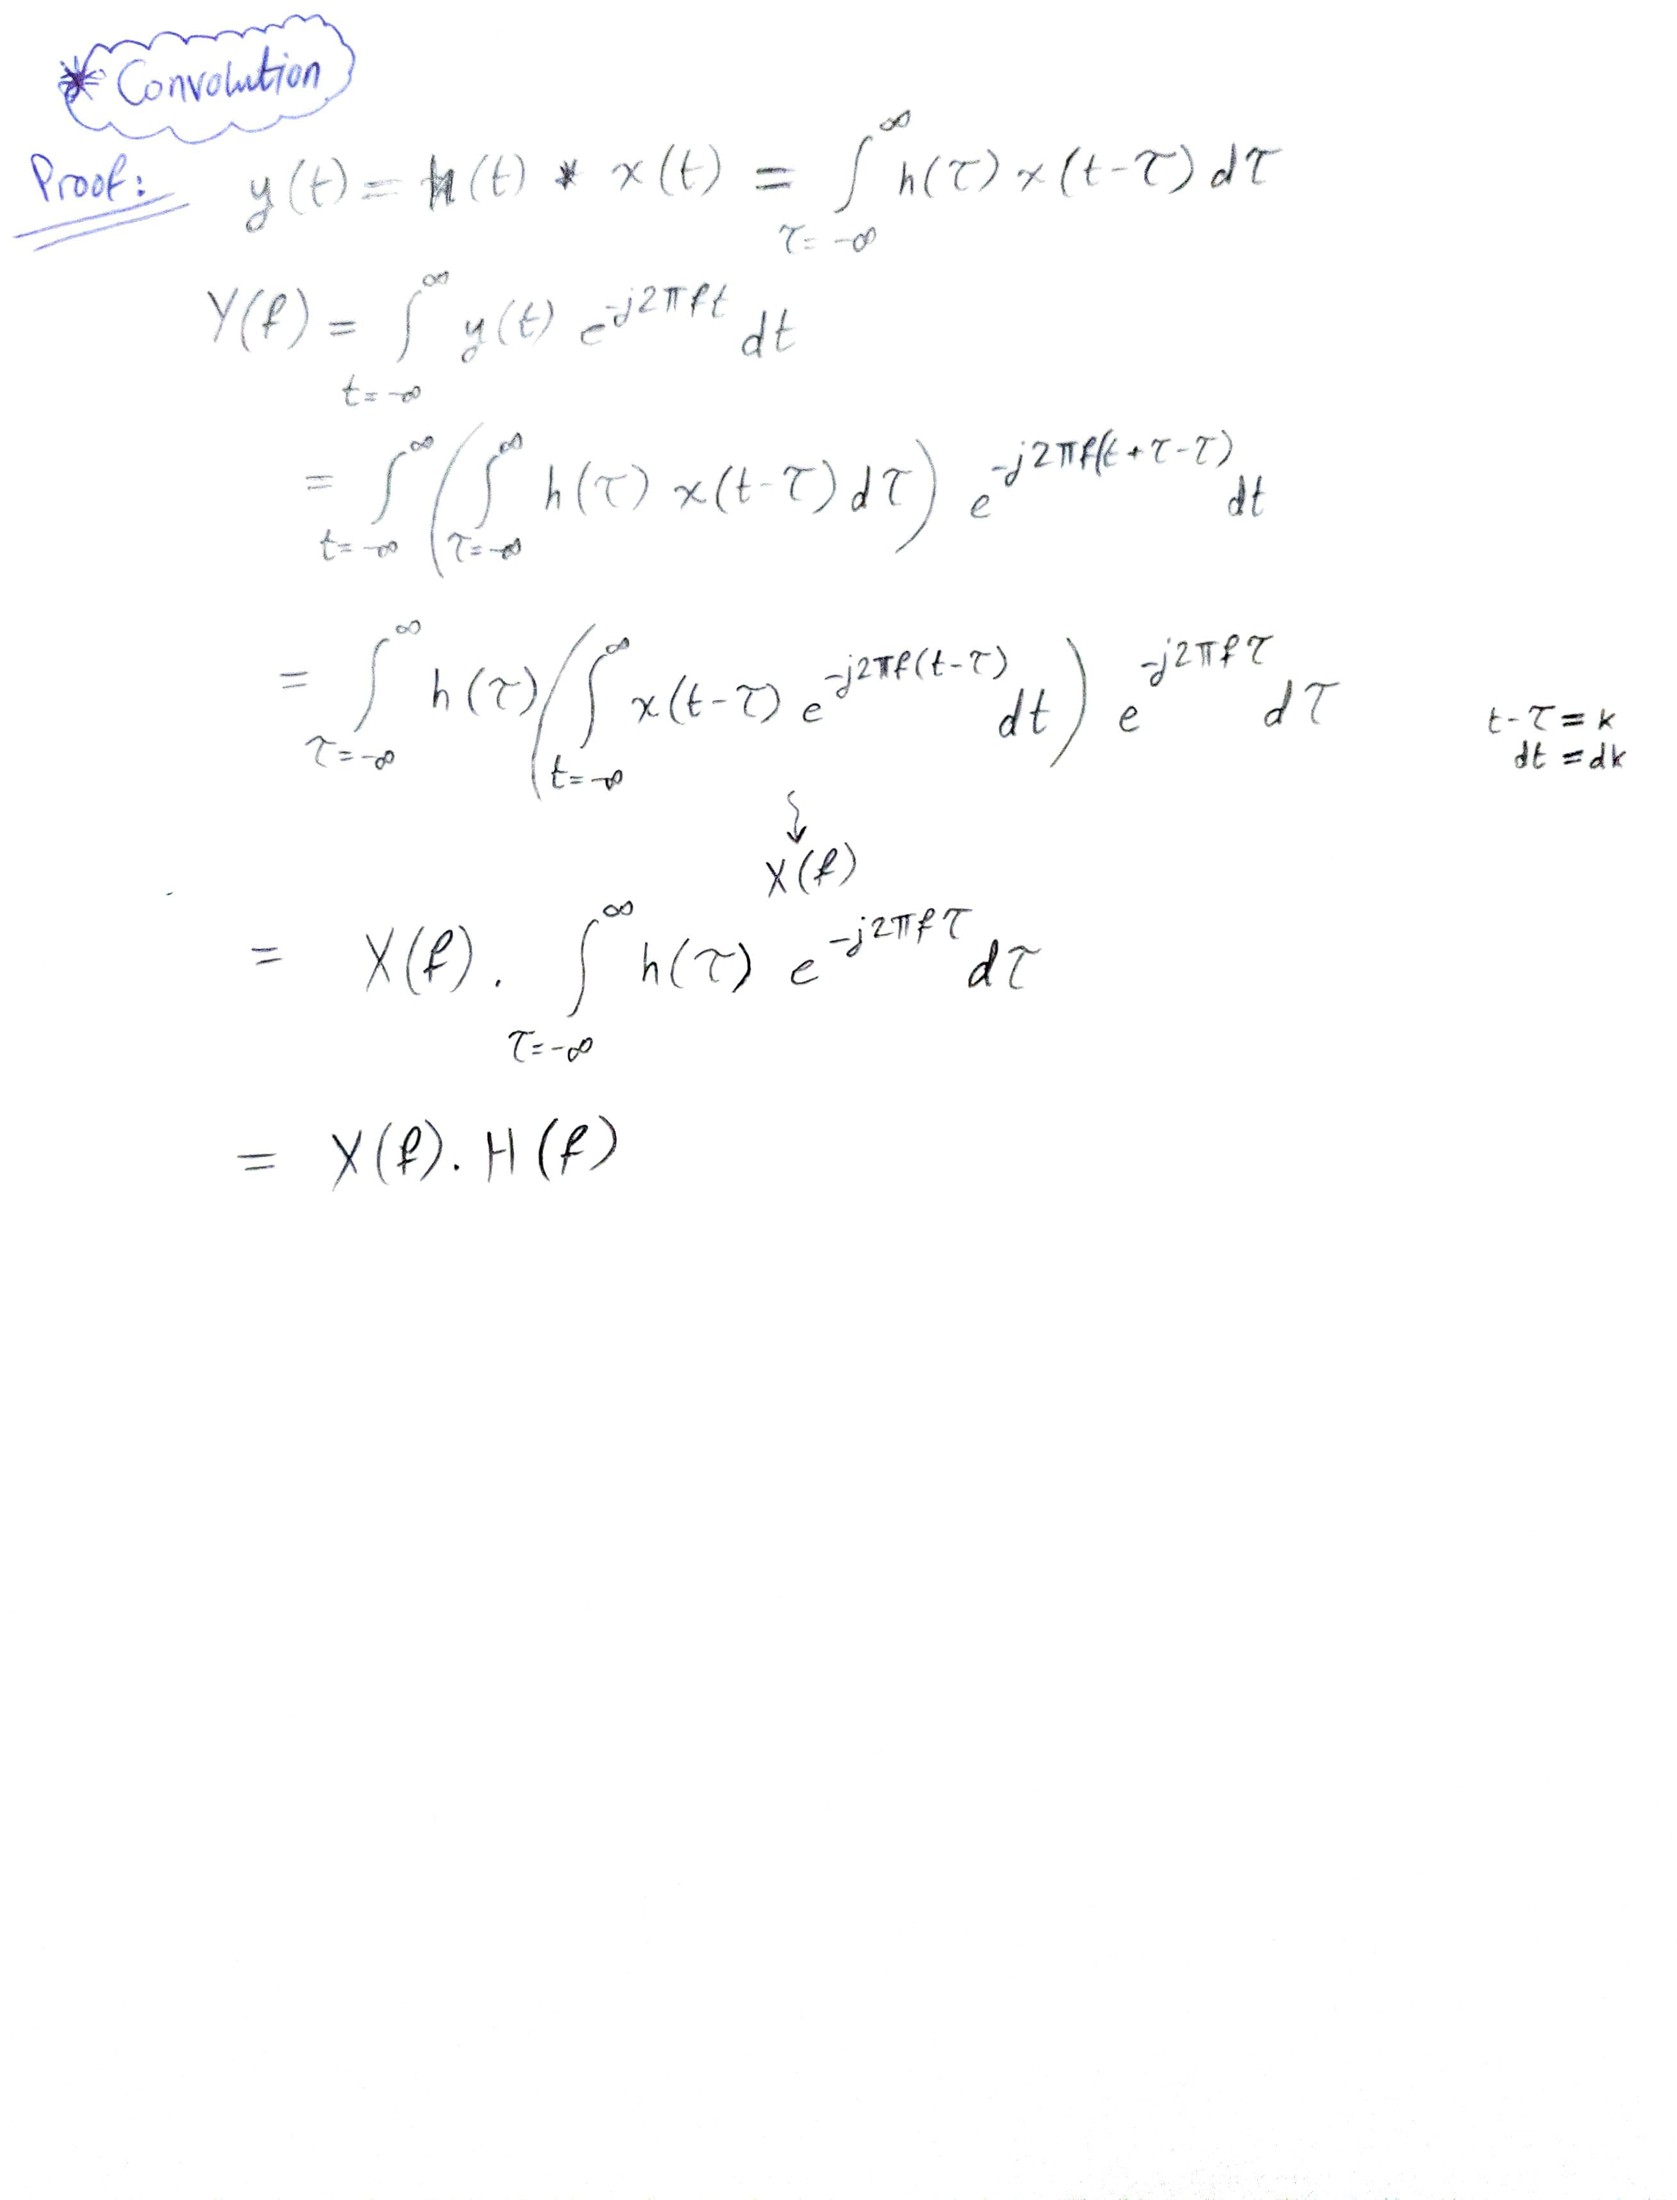 * Convolution
Proof: y(t) = h(t) * x(t) = ∫_{τ=-∞}^{∞} h(τ) x(t-τ) dτ
Y(f) = ∫_{t=-∞}^{∞} y(t) e^{-j2πft} dt
= ∫_{t=-∞}^{∞} (∫_{τ=-∞}^{∞} h(τ) x(t-τ) dτ) e^{-j2πf(t+τ-τ)} dt
= ∫_{τ=-∞}^{∞} h(τ) (∫_{t=-∞}^{∞} x(t-τ) e^{-j2πf(t-τ)} dt) e^{-j2πfτ} dτ
t-τ = k
dt = dk
↓
X(f)
= X(f) . ∫_{τ=-∞}^{∞} h(τ) e^{-j2πfτ} dτ
= X(f) . H(f)